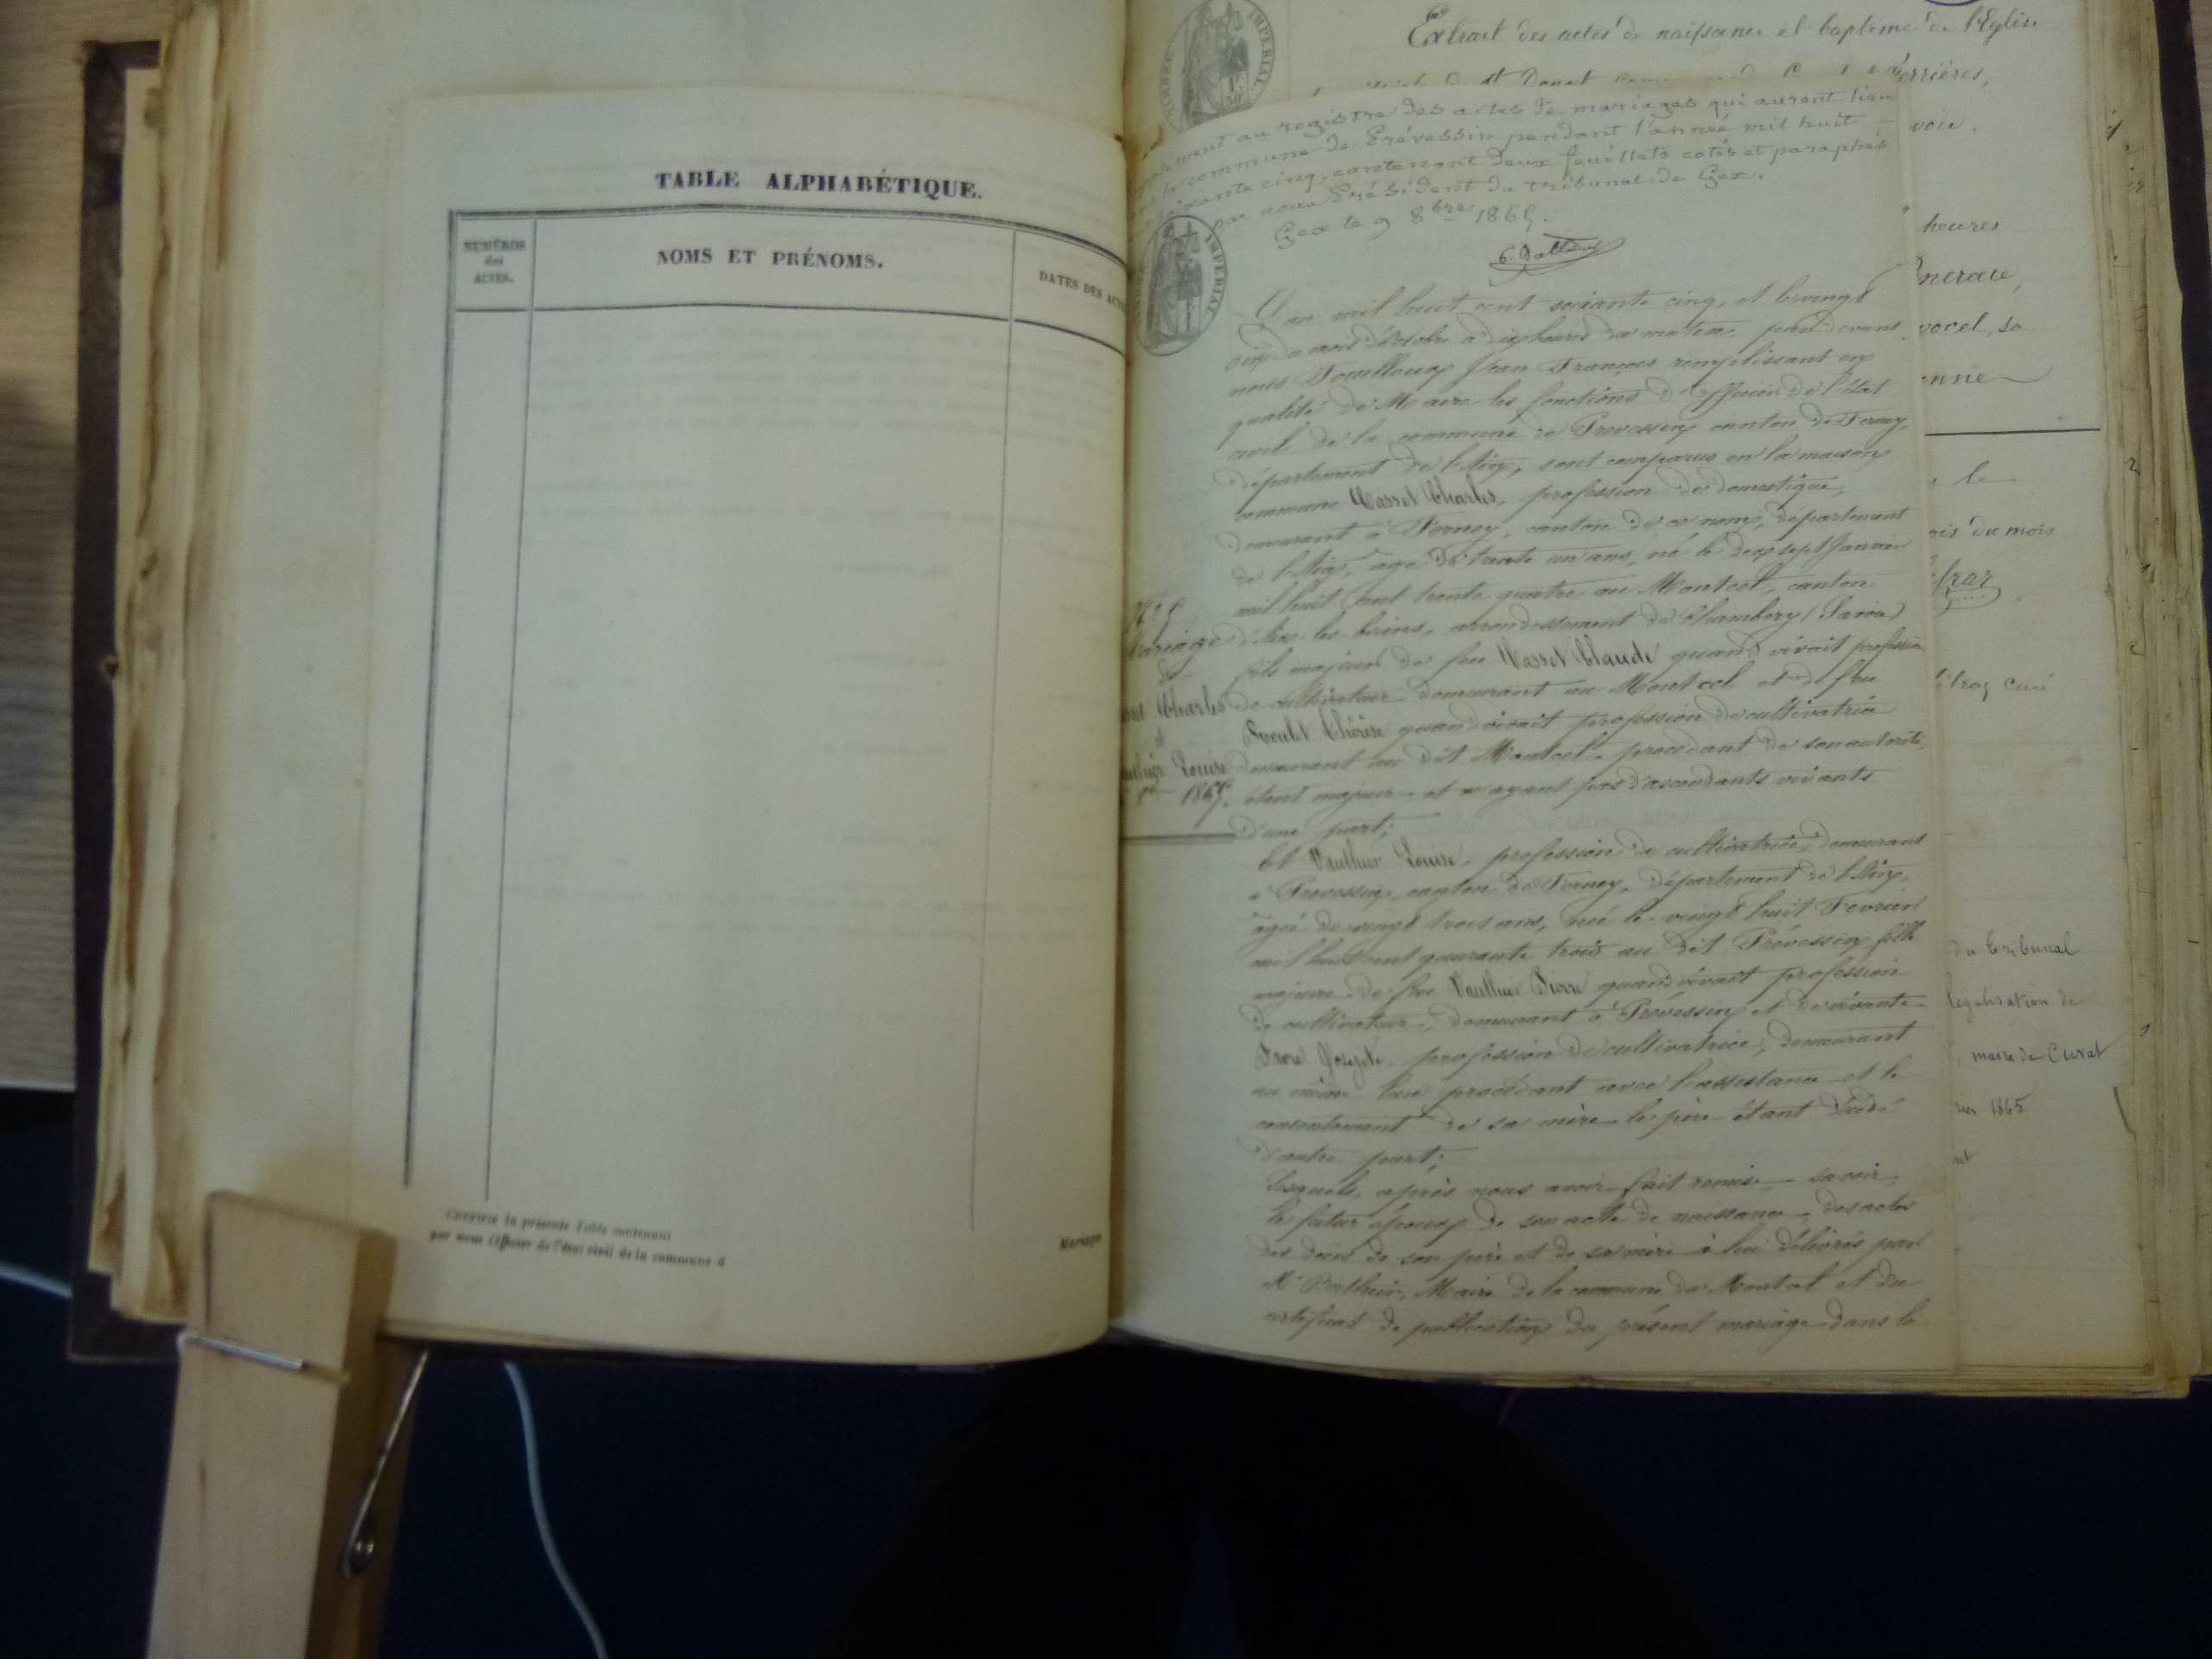 TABLE ALPHABÉTIQUE.
NUMÉROS
des
ACTES.
NOMS ET PRÉNOMS.
DATES DES ACT
Certifié la présente Table contenant
par nous Officier de l'état civil de la commune d
Mariage
Extrait des actes de naissance et baptême de l'Eglise
TIMBRE IMPERIAL
errières,
voie.
au registre des actes de mariages qui auront lieu
la commune de Prévessin pendant l'année mil huit
soixante cinq, contenant deux feuillets cotés et paraphés
par nous Président du tribunal de Gex.
Gex le 9 8bre 1865.
IMPERIAL
L'an mil huit cent soixante cinq, et le vingt
six du mois d'Octobre à dix heures du matin, par devant
nous Fouilloux Jean François remplissant en
qualité de Maire les fonctions d'officier de l'état
civil de la commune de Prevessin canton de Ferney,
département de l'Ain, sont comparus en la maison
commune Masset Charles, profession de domestique,
demeurant à Ferney, canton de ce nom, département
de l'Ain, agé de trente un ans, né le dix sept Janvier
mil huit cent trente quatre au Montcel, canton
d'Aix-les-bains, arrondissement de Chambéry (Savoie)
fils majeur de feu Masset Claude quand vivait profession
de cultivateur demeurant au Montcel et de feu
Thérèse quand vivait profession de cultivatrice
demeurant au dit Montcel, procédant de son autorité,
étant majeur et n'ayant pas d'ascendants vivants
d'une part;
Mariage
de
Charles
et
Louise
1865.
Et Vauthier Louise, profession de cultivatrice, demeurant
à Prevessin, canton de Ferney, département de l'Ain,
agée de vingt trois ans, née le vingt huit Fevrier
mil huit cent quarante trois au dit Prévessin fille
majeure de feu Vauthier Pierre quand vivait profession
de cultivateur, demeurant à Prévessin et de vivante
profession de cultivatrice, demeurant
au même lieu procédant avec l'assistance et le
consentement de sa mère le père étant décédé
d'autre part;
Lesquels, après nous avoir fait remise, savoir,
le futur époux de son acte de naissance, des actes
des décès de son père et de sa mère à lui délivrés par
Mr Maire de la commune du Montcel et du
certificat de publication du présent mariage dans la
heures
vorel, sa
le
du mois
curé
du tribunal
légalisation de
maire de Cuvat
1865